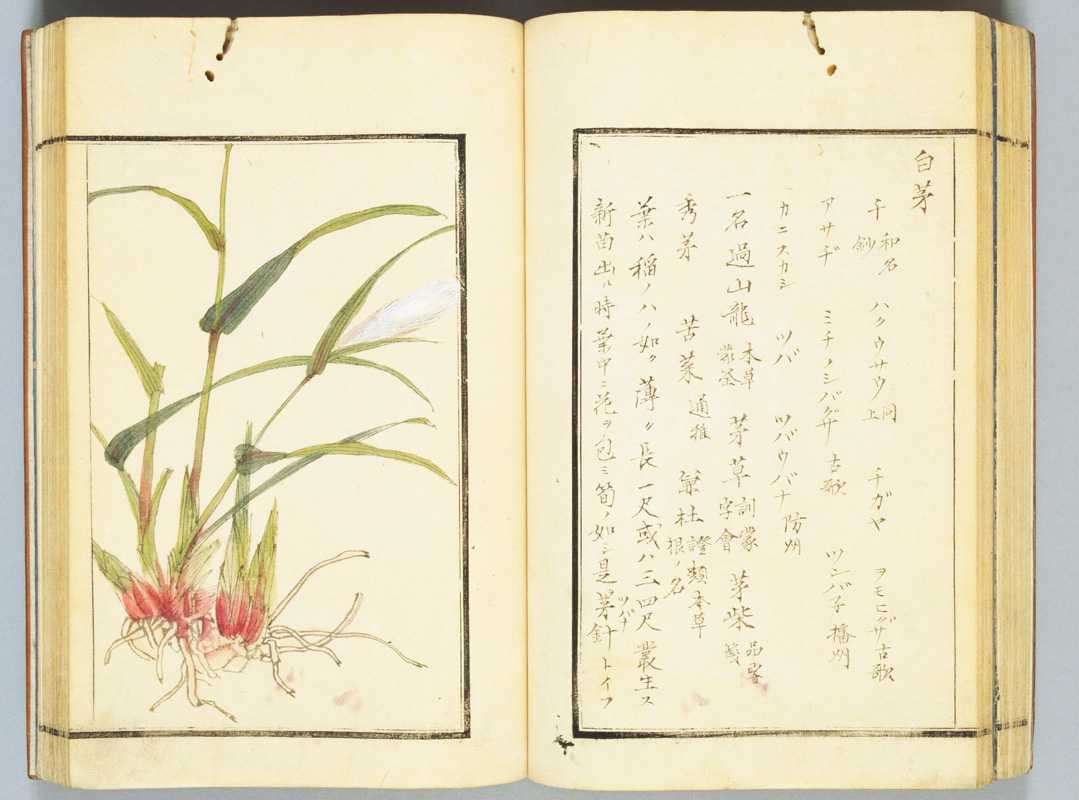 白茅
和名鈔 ハクウサウ 同上 チガヤ ヲモヒグサ 古歌
アサヂ ミチノシバグサ 古歌 ツンバネ 播州
カニスカシ ツバ ツバウバナ 防州
一名 過山龍 本草 茅草 訓蒙字會 茅柴 品字箋
秀茅 苦菜 通雅 杜 證類本草 根ノ名
葉ハ稲ノハノ如ク薄ク長一尺或ハ三四尺叢生ス
新苗出ル時葉中ニ花ヲ包ミ筍ノ如シ是茅針ツバナトイフ